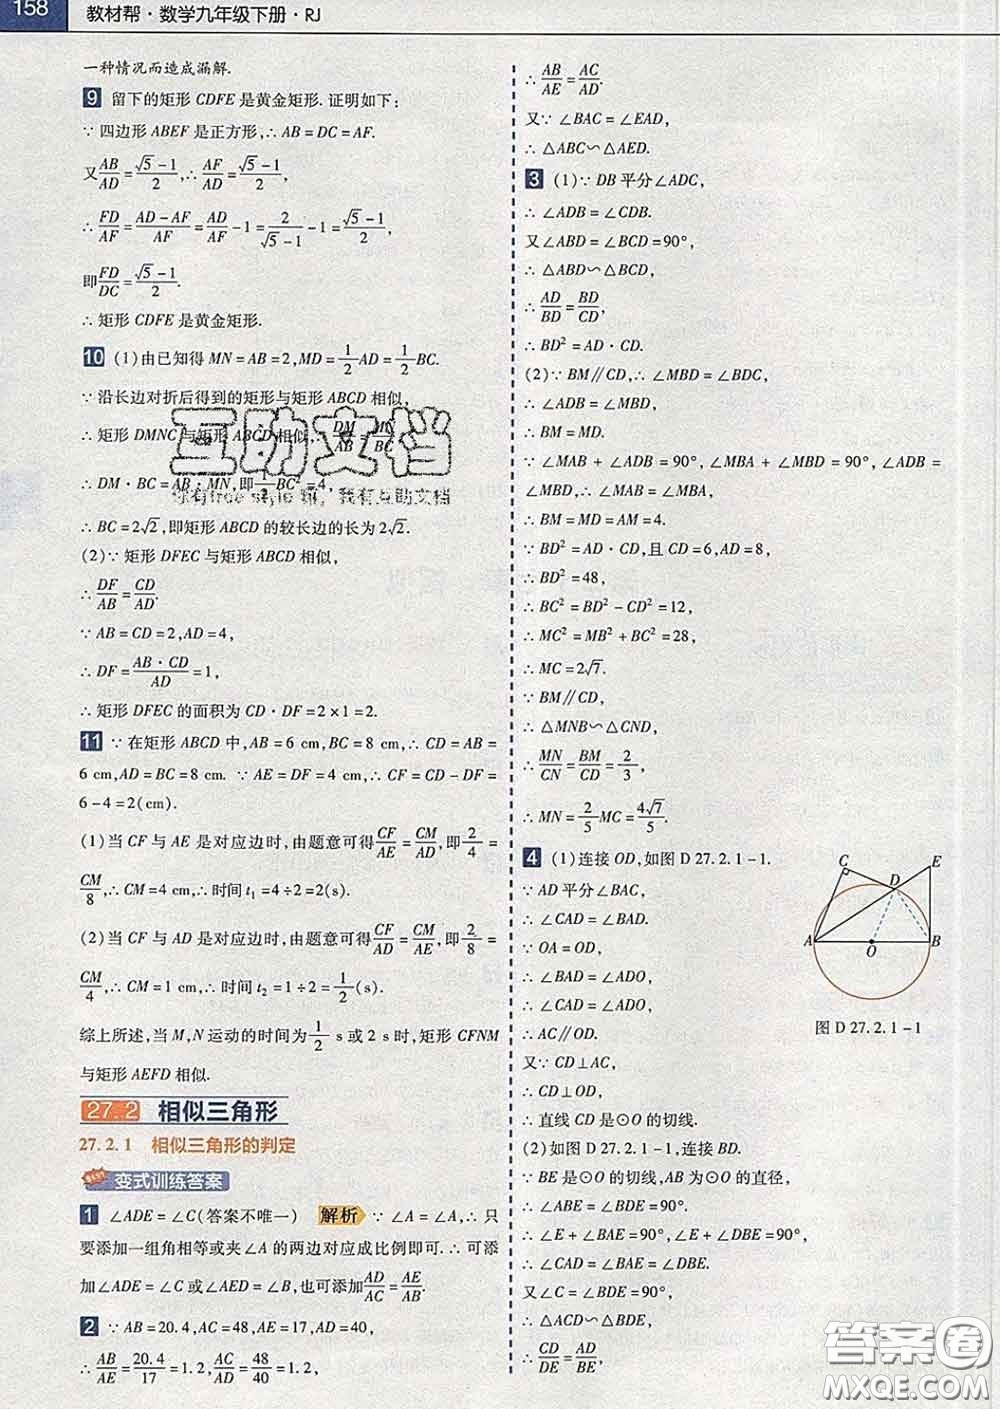 158 教材帮·数学九年级下册·RJ
一种情况而造成漏解.
9 留下的矩形 CDFE 是黄金矩形. 证明如下:
∵ 四边形 ABEF 是正方形,∴ AB = DC = AF.
又 AB/AD = (√5 - 1)/2, ∴ AF/AD = (√5 - 1)/2,
∴ FD/AF = (AD - AF)/AF = AD/AF - 1 = 2/(√5 - 1) - 1 = (√5 - 1)/2,
即 FD/DC = (√5 - 1)/2.
∴ 矩形 CDFE 是黄金矩形.
10 (1)由已知得 MN = AB = 2, MD = 1/2 AD = 1/2 BC.
∵ 沿长边对折后得到的矩形与矩形 ABCD 相似,
∴ 矩形 DMNC 与矩形 ABCD 相似,∴ DM/AB = MN/BC
∴ DM · BC = AB · MN, 即 1/2 BC² = 4,
∴ BC = 2√2, 即矩形 ABCD 的较长边的长为 2√2.
(2)∵ 矩形 DFEC 与矩形 ABCD 相似,
∴ DF/AB = CD/AD.
∵ AB = CD = 2, AD = 4,
∴ DF = AB · CD/AD = 1,
∴ 矩形 DFEC 的面积为 CD · DF = 2 × 1 = 2.
11 ∵ 在矩形 ABCD 中, AB = 6 cm, BC = 8 cm, ∴ CD = AB =
6 cm, AD = BC = 8 cm. ∵ AE = DF = 4 cm, ∴ CF = CD - DF =
6 - 4 = 2(cm).
(1)当 CF 与 AE 是对应边时, 由题意可得 CF/AE = CM/AD, 即 2/4 =
CM/8, ∴ CM = 4 cm, ∴ 时间 t₁ = 4 ÷ 2 = 2(s).
(2)当 CF 与 AD 是对应边时, 由题意可得 CF/AD = CM/AE, 即 2/8 =
CM/4, ∴ CM = 1 cm, ∴ 时间 t₂ = 1 ÷ 2 = 1/2(s).
综上所述, 当 M, N 运动的时间为 1/2 s 或 2 s 时, 矩形 CFNM
与矩形 AEFD 相似.
27.2 相似三角形
27.2.1 相似三角形的判定
变式训练答案
1 ∠ADE = ∠C(答案不唯一) 解析 ∵ ∠A = ∠A, ∴ 只
要添加一组角相等或夹∠A 的两边对应成比例即可. ∴ 可添
加∠ADE = ∠C 或∠AED = ∠B, 也可添加 AD/AC = AE/AB.
2 ∵ AB = 20.4, AC = 48, AE = 17, AD = 40,
∴ AB/AE = 20.4/17 = 1.2, AC/AD = 48/40 = 1.2,
∴ AB/AE = AC/AD.
又∵ ∠BAC = ∠EAD,
∴ △ABC∽△AED.
3 (1)∵ DB 平分∠ADC,
∴ ∠ADB = ∠CDB.
又∠ABD = ∠BCD = 90°,
∴ △ABD∽△BCD,
∴ AD/BD = BD/CD,
∴ BD² = AD · CD.
(2)∵ BM∥CD, ∴ ∠MBD = ∠BDC,
∴ ∠ADB = ∠MBD,
∴ BM = MD.
∵ ∠MAB + ∠ADB = 90°, ∠MBA + ∠MBD = 90°, ∠ADB =
∠MBD, ∴ ∠MAB = ∠MBA,
∴ BM = MD = AM = 4.
∵ BD² = AD · CD, 且 CD = 6, AD = 8,
∴ BD² = 48,
∴ BC² = BD² - CD² = 12,
∴ MC² = MB² + BC² = 28,
∴ MC = 2√7.
∵ BM∥CD,
∴ △MNB∽△CND,
∴ MN/CN = BM/CD = 2/3,
∴ MN = 2/5 MC = 4√7/5.
4 (1)连接 OD, 如图 D 27.2.1-1.
∵ AD 平分∠BAC,
∴ ∠CAD = ∠BAD.
∵ OA = OD,
∴ ∠BAD = ∠ADO,
∴ ∠CAD = ∠ADO,
∴ AC∥OD.
又∵ CD⊥AC,
∴ CD⊥OD,
∴ 直线 CD 是⊙O 的切线.
(2)如图 D 27.2.1-1, 连接 BD.
∵ BE 是⊙O 的切线, AB 为⊙O 的直径,
∴ ∠ABE = ∠BDE = 90°.
∴ ∠E + ∠BAE = 90°, ∠E + ∠DBE = 90°,
∴ ∠CAD = ∠BAE = ∠DBE.
又∠C = ∠BDE = 90°,
∴ △ACD∽△BDE,
∴ CD/DE = AD/BE,
C
E
D
A
O
B
图 D 27.2.1-1
互助文档
答案圈
MXQE.COM